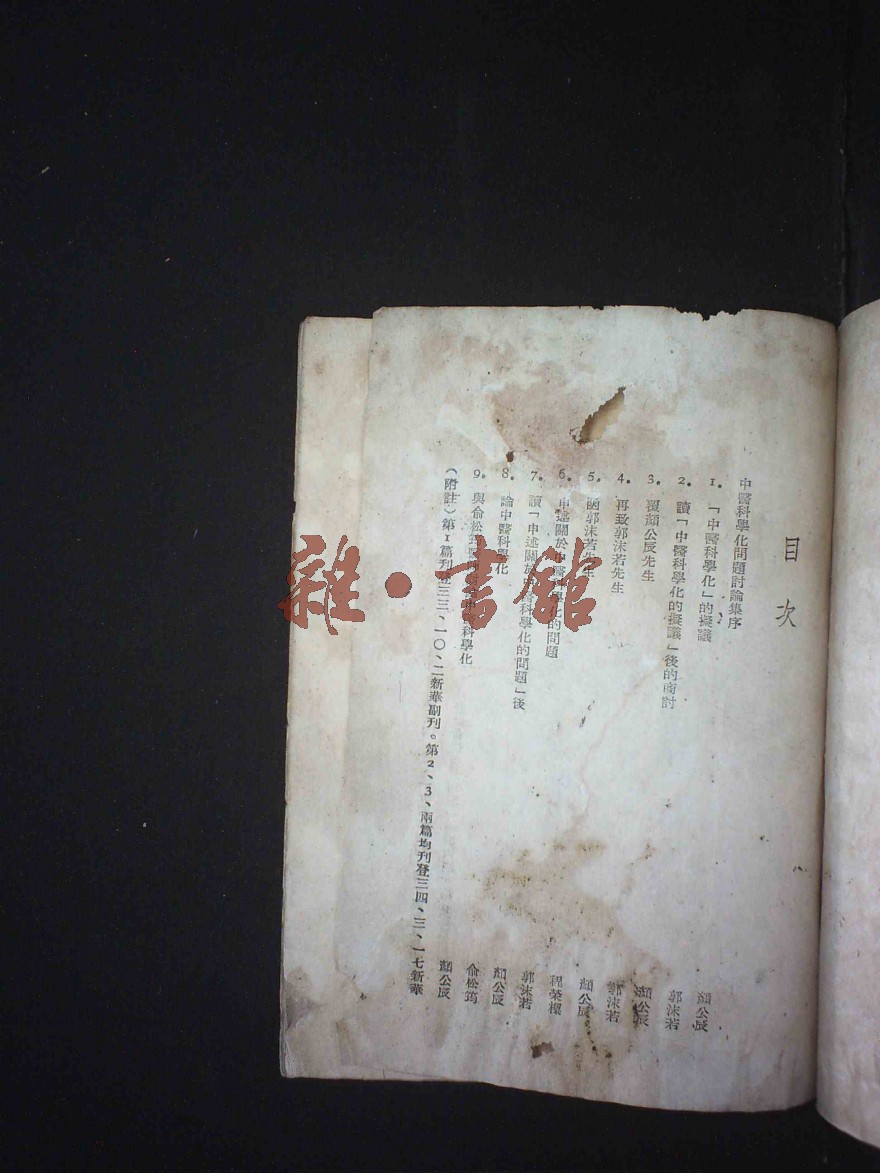 目次
中醫科學化問題討論集序 顏公辰
1. 「中醫科學化」的擬議 郭沫若
2. 讀「中醫科學化的擬議」後的商討 顏公辰
3. 覆顏公辰先生 郭沫若
4. 再致郭沫若先生 顏公辰
5. 函郭沫若先生 程榮樑
6. 申述關於中醫科學化的問題 郭沫若
7. 讀「申述關於中醫科學化的問題」後 顏公辰
8. 論中醫科學化 俞松筠
9. 與俞松筠醫師論中醫科學化 顏公辰
(附註)第1篇刊登三三、一〇、二新華副刊。第2、3、兩篇均刊登三四、三、一七新華
雜·書館